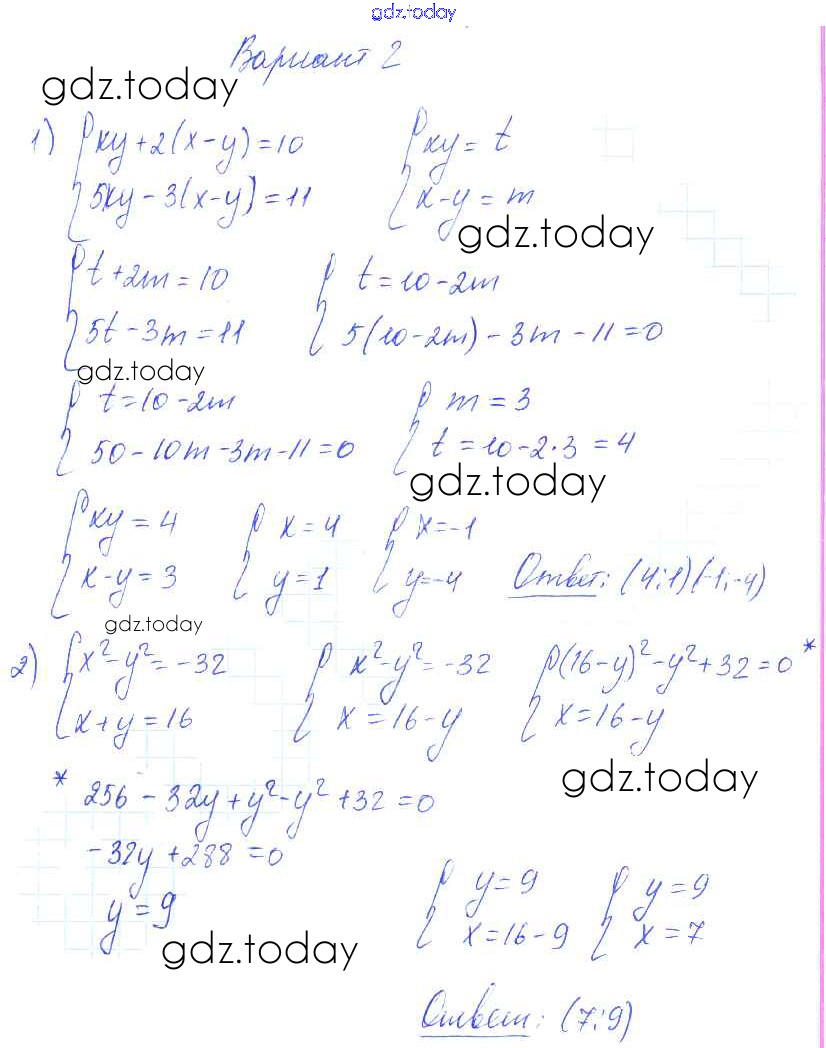 gdz.today
Вариант 2
gdz.today
1) { xy + 2(x - y) = 10 { xy = t
5xy - 3(x - y) = 11 x - y = m
gdz.today
{ t + 2m = 10 { t = 10 - 2m
5t - 3m = 11 5(10 - 2m) - 3m - 11 = 0
gdz.today
{ t = 10 - 2m { m = 3
50 - 10m - 3m - 11 = 0 t = 10 - 2·3 = 4
gdz.today
{ xy = 4 { x = 4 { x = -1
x - y = 3 y = 1 y = -4 Ответ: (4;1)(-1;-4)
gdz.today
2) { x² - y² = -32 { x² - y² = -32 { (16 - y)² - y² + 32 = 0 *
x + y = 16 x = 16 - y x = 16 - y
gdz.today
* 256 - 32y + y² - y² + 32 = 0
-32y + 288 = 0
y = 9
{ y = 9 { y = 9
x = 16 - 9 x = 7
gdz.today
Ответ: (7;9)